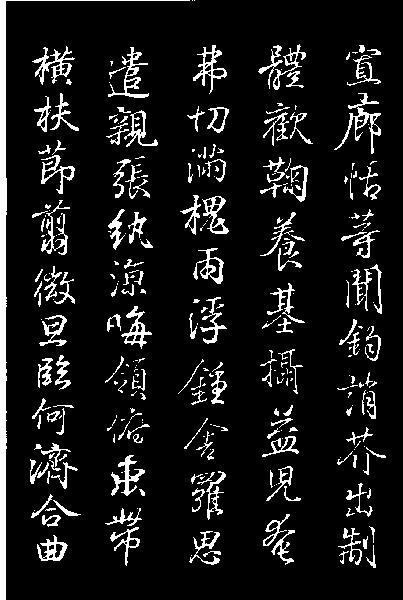 宣廊恬等聞鈞誚芥出制
體歡鞠養基攝益兒奄
弗切滿槐兩浮鍾舍羅思
遣親張紈涼晦領俯束帶
橫扶節翦微旦臨何濟合曲